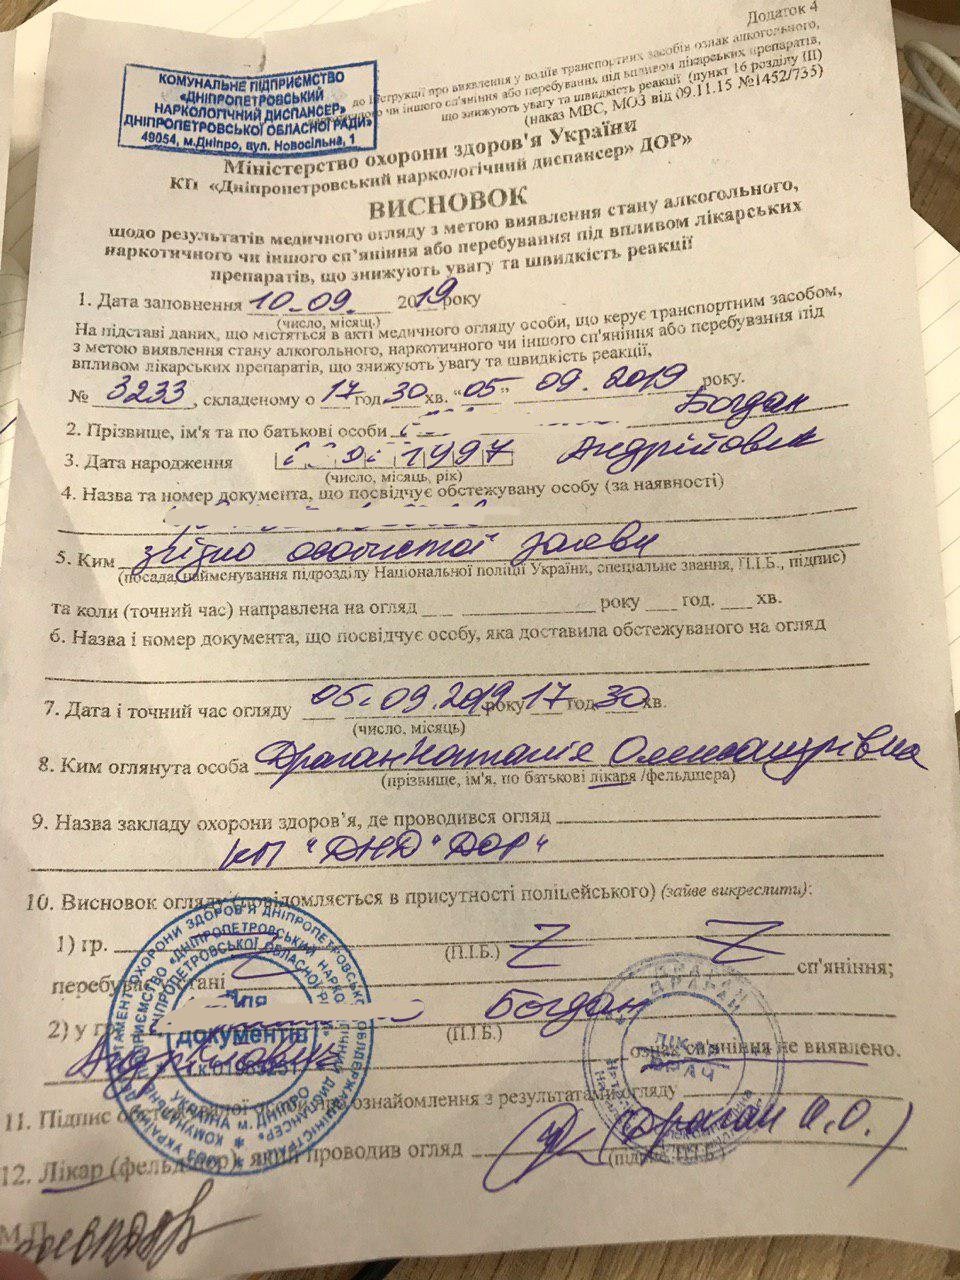 Додаток 4
до Інструкції про виявлення у водіїв транспортних засобів ознак алкогольного,
наркотичного чи іншого сп'яніння або перебування під впливом лікарських препаратів,
що знижують увагу та швидкість реакції (пункт 16 розділу (ІІ)
(наказ МВС, МОЗ від 09.11.15 №1452/735)
КОМУНАЛЬНЕ ПІДПРИЄМСТВО
«ДНІПРОПЕТРОВСЬКИЙ
НАРКОЛОГІЧНИЙ ДИСПАНСЕР»
ДНІПРОПЕТРОВСЬКОЇ ОБЛАСНОЇ РАДИ»
49054, м.Дніпро, вул. Новосільна, 1
Міністерство охорони здоров'я України
КП «Дніпропетровський наркологічний диспансер» ДОР»
ВИСНОВОК
щодо результатів медичного огляду з метою виявлення стану алкогольного,
наркотичного чи іншого сп'яніння або перебування під впливом лікарських
препаратів, що знижують увагу та швидкість реакції
1. Дата заповнення 10.09. 2019 року
(число, місяць)
На підставі даних, що містяться в акті медичного огляду особи, що керує транспортним засобом,
з метою виявлення стану алкогольного, наркотичного чи іншого сп'яніння або перебування під
впливом лікарських препаратів, що знижують увагу та швидкість реакції,
№ 3233, складеному о 17 год 30 хв. "05" 09. 2019 року.
2. Прізвище, ім'я та по батькові особи Богдан
3. Дата народження 1997 Андрійович
(число, місяць, рік)
4. Назва та номер документа, що посвідчує обстежувану особу (за наявності)
5. Ким згідно особистої заяви
(посада, найменування підрозділу Національної поліції України, спеціальне звання, П.І.Б., підпис)
та коли (точний час) направлена на огляд ___ року ___ год. ___ хв.
6. Назва і номер документа, що посвідчує особу, яка доставила обстежуваного на огляд
7. Дата і точний час огляду 05.09.2019 року 17 год 30 хв.
(число, місяць)
8. Ким оглянута особа Драган Наталія Олександрівна
(прізвище, ім'я, по батькові лікаря /фельдшера)
9. Назва закладу охорони здоров'я, де проводився огляд
КП "ДНД" ДОР"
10. Висновок огляду (повідомляється в присутності поліцейського) (зайве викреслити):
1) гр. Z Z
(П.І.Б.)
перебуває стані Z сп'яніння;
2) у гр. Богдан
(П.І.Б.)
Андрійович ознак сп'яніння не виявлено.
для документів
УКРАЇНА м. ДНІПРО
ДРАГАН
ЛІКАР
ВРАЧ
11. Підпис ознайомлення з результатами огляду
12. Лікар (фельдшер), який проводив огляд (Драган Н.О.)
(підпис, П.І.Б.)
М.П.